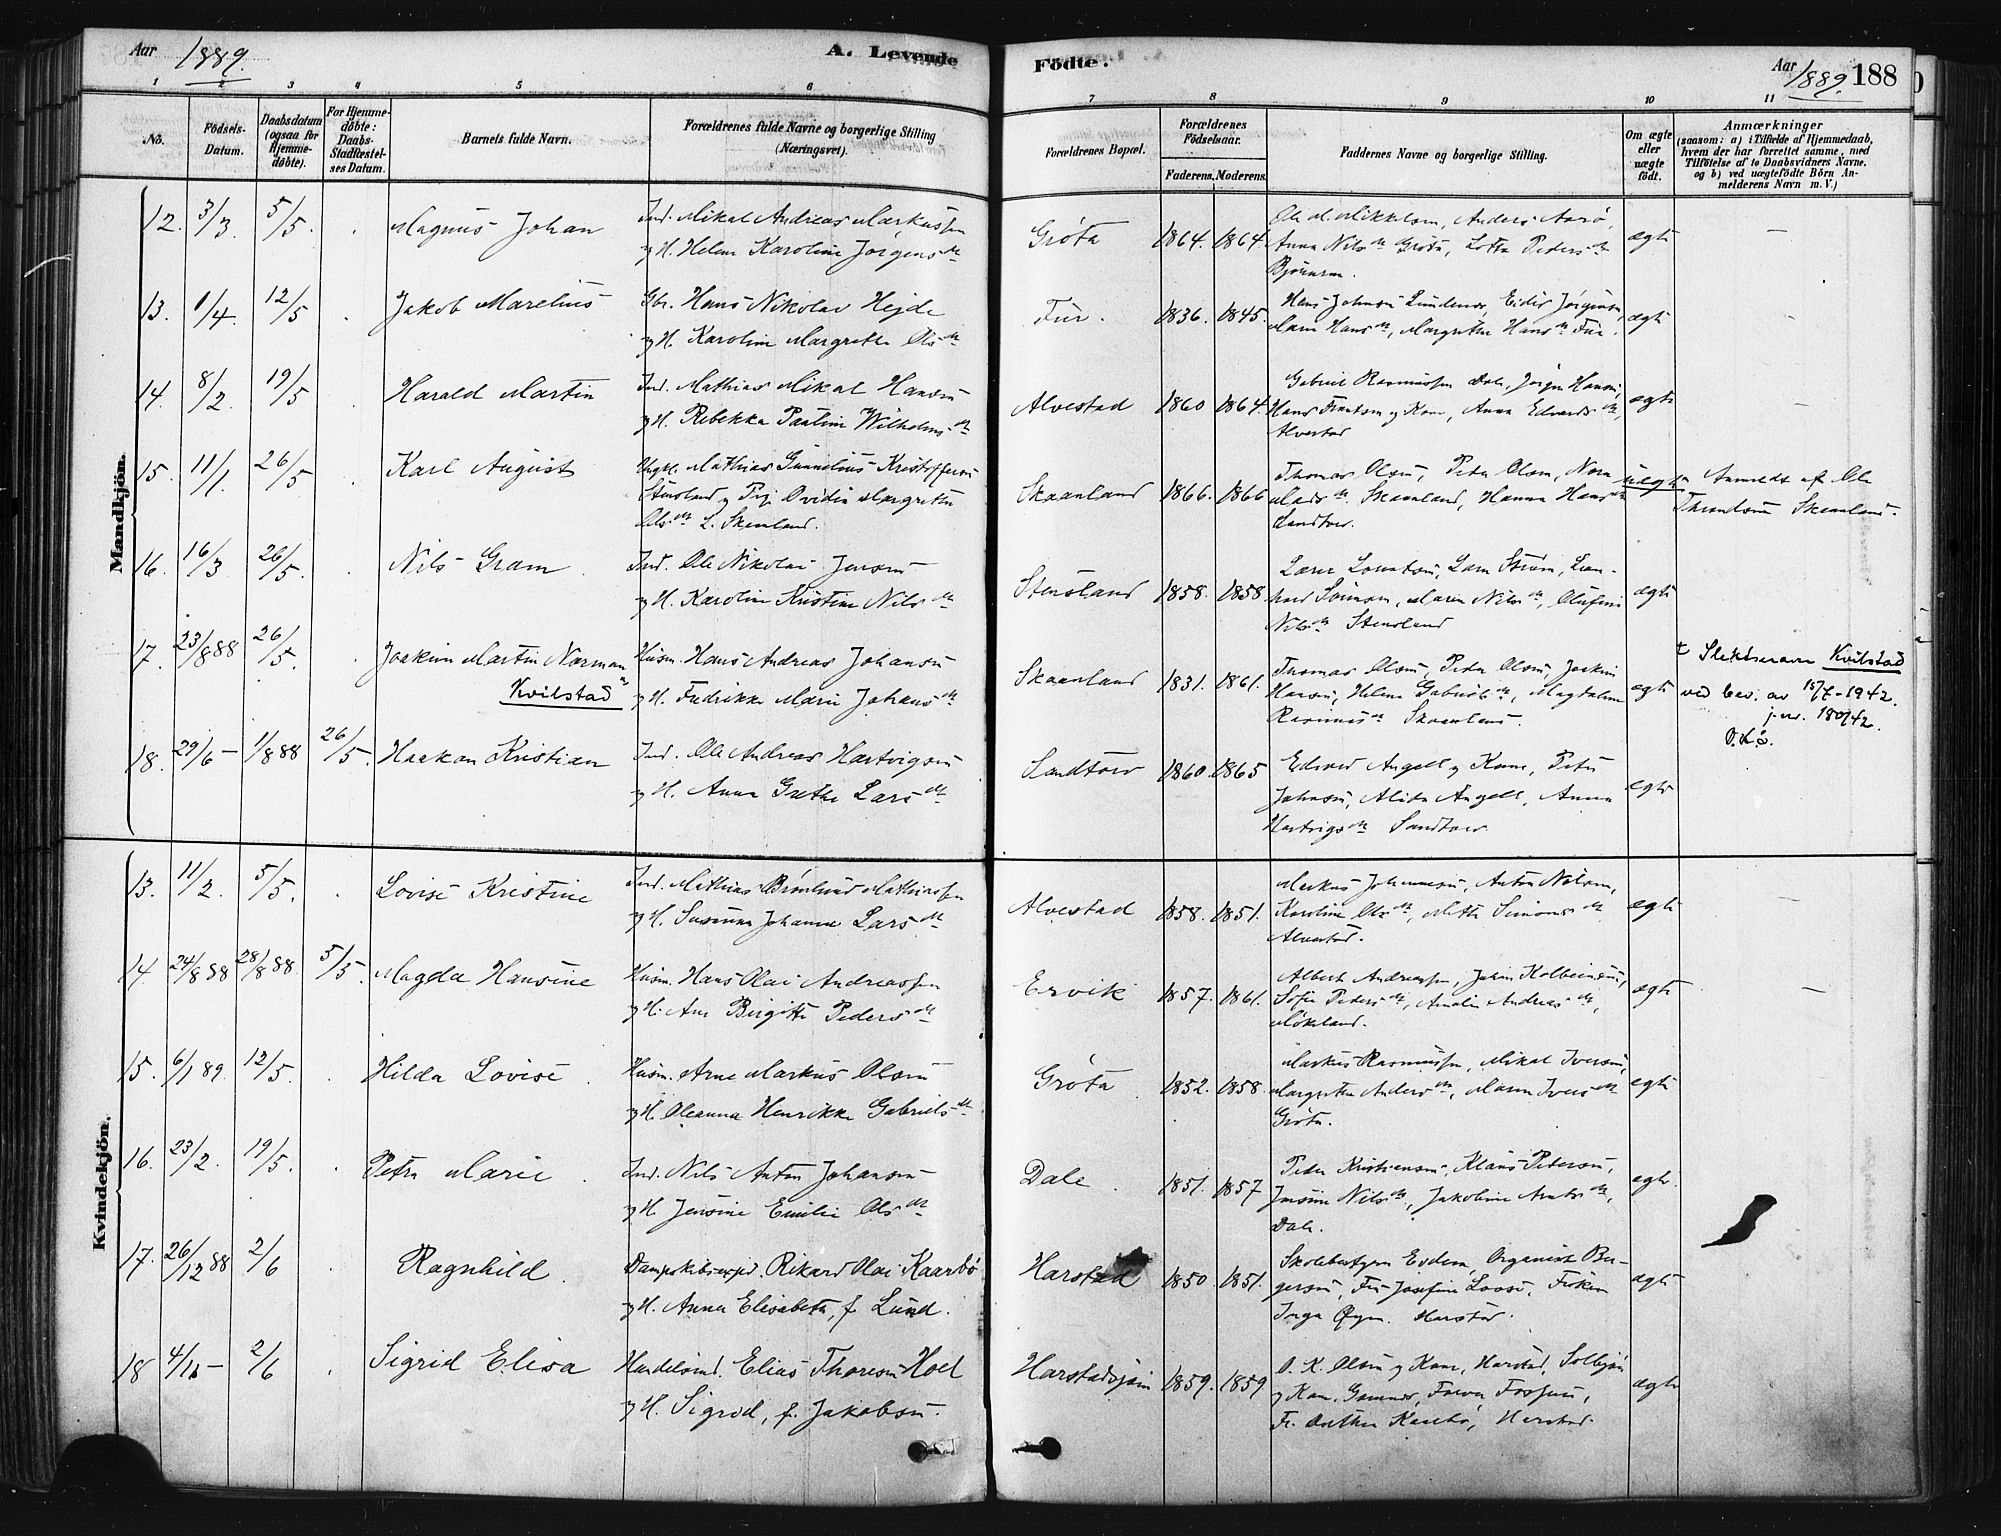 Aar 1889.
A. Levende Födte.
Aar 1889. 188
1 2 3 4 5 6 7 8 9 10 11
No.
Födsels-Datum.
Daabsdatum (ogsaa for Hjemme-döbte).
For Hjemme-döbte: Daabs-Stadfestel-ses Datum.
Barnets fulde Navn.
Forældrenes fulde Navne og borgerlige Stilling (Næringsvei).
Forældrenes Bopæl.
Forældrenes Födselsaar.
Faderens. Moderens.
Faddernes Navne og borgerlige Stilling.
Om ægte eller uægte födt.
Anmærkninger
(saasom: a) i Tilfælde af Hjemmedaab, hvem der har forrettet samme, med Tilföielse af to Daabsvidners Navne. og b) ved uægtefödte Börn An-melderens Navn m. V.)
Mandkjön.
12. 3/3. 5/5. Magnus Johan
Ind. Mikal Andreas Markussen
og H. Helene Karoline Jørgensdtr
Grøta 1864. 1864.
Ole M. Mikkelsen, Anders Aarø,
Anna Nilsdtr Grøta, Lotta Pedersdtr
ægte –
13. 1/4. 12/5 Jakob Marelius
Gbr. Hans Nikolai Hejde
og H. Karoline Margrethe Olsdtr
Fur. 1836. 1845.
Hans Johnsen Lundenes, Eidis Jørgensen,
Marie Hansdtr, Margrethe Hansdtr Fur.
ægte
14. 8/2. 19/5 Harald Martin
Ind. Mathias Mikal Hansen
og H. Rebekka Pauline Wilhelmsdtr
Alvestad 1860 1864.
Gabriel Rasmussen Dale, Jørgen Hansen,
Hans og Kone, Anna Edvardsdtr,
Alvestad
ægte –
15. 11/1. 26/5 Karl August
Ungk. Mathias Gunnelius Kristoffersen
Stensland og Pige Ovidia Margrethe
Olsdtr L. Skaanland.
Skaanland 1866. 1866
Thomas Olsen, Peder Olsen,
Skaanland, Hanna Hansdtr
Sandtorv.
uægte Anmeldt af Ole
Skaanland.
16. 16/3 26/5. Nils Gram
Ind. Ole Nikolai Jensen
og H. Karoline Kristine Nilsdtr
Stensland 1858. 1858
Lars Strøm,
Maren Nilsdtr, Olufine
Nilsdtr Stensland
ægte
17. 23/8 88 26/5. Joakim Martin Norman
Kvilstad
Husm. Hans Andreas Johansen
og H. Fredrikke Marie Johansdtr
Skaanland 1831. 1861.
Thomas Olsen, Peder Olsen, Joakim
Hansen, Helene Gabrielsdtr, Magdalene
Rasmusdtr Skaanland.
ægte
Slektsnavn Kvilstad
ved bev. av 15/7-1942.
j.nr. 180/42.
O.Kå.
18. 29/6 – 1/8 88 26/5. Haakon Kristian
Ind. Ole Andreas Hartvigsen
og H. Anna Grethe Larsdtr
Sandtorv 1860. 1865
Edvard Angell og Kone, Peter
Johnsen, Alida Angell, Anna
Hartvigsdtr Sandtorv
ægte
Kvindekjön.
13. 11/2 5/5. Lovise Kristine
Ind. Mathias Brønlund Mathiassen
og H. Susanna Johanna Larsdtr
Alvestad 1858. 1851.
Markus Johannesen, Anton Nilsen,
Karoline Olsdtr, Mette Simonsdtr
Alvestad.
ægte –
14. 24/8 88 28/8 88. 5/5. Magda Hansine
Husm. Hans Olai Andreassen
og H. Ane Birgitte Pedersdtr
Ervik 1857. 1861.
Albert Andreassen, Johan Kolbeinsen,
Sofie Pedersdtr, Amalie Andreasdtr,
Møkland.
ægte –
15. 6/1 89. 12/5. Hilda Lovise
Husm. Arne Markus Olsen
og H. Oleanna Henrikke Gabrielsdtr
Grøta 1852. 1858.
Markus Rasmussen, Mikal Iversen,
Margrethe Andersdtr, Maren Iversdtr
Grøta.
ægte
16. 23/2. 19/5. Petra Marie
Ind. Nils Anton Johansen
og H. Jensine Emilie Olsdtr
Dale 1851. 1857
Peder Kristiansen, Klaus Petersen,
Jensine Nilsdtr, Jakobine Arntsdtr,
Dale.
ægte
17. 26/12 88 2/6 Ragnhild
Dampskibsexped. Rikard Olai Kaarbø
og H. Anna Elisabeth, f. Lund.
Harstad 1850. 1851.
Skolebestyrer Evdem, Organist Ber-
gersen, Fru Josefine Loose, Frøken
Inga Øyen. Harstad.
ægte
18 4/11 – 2/6 Sigrid Elisa
Handelsmd. Elias Thoresen Hoel
og H. Sigrid, f. Jakobsen.
Harstadsjøen 1859. 1859
O. K. Olsen og Kone, Harstad,
og Kone,
Fr. Dorthea Kaarbø, Harstad.
ægte